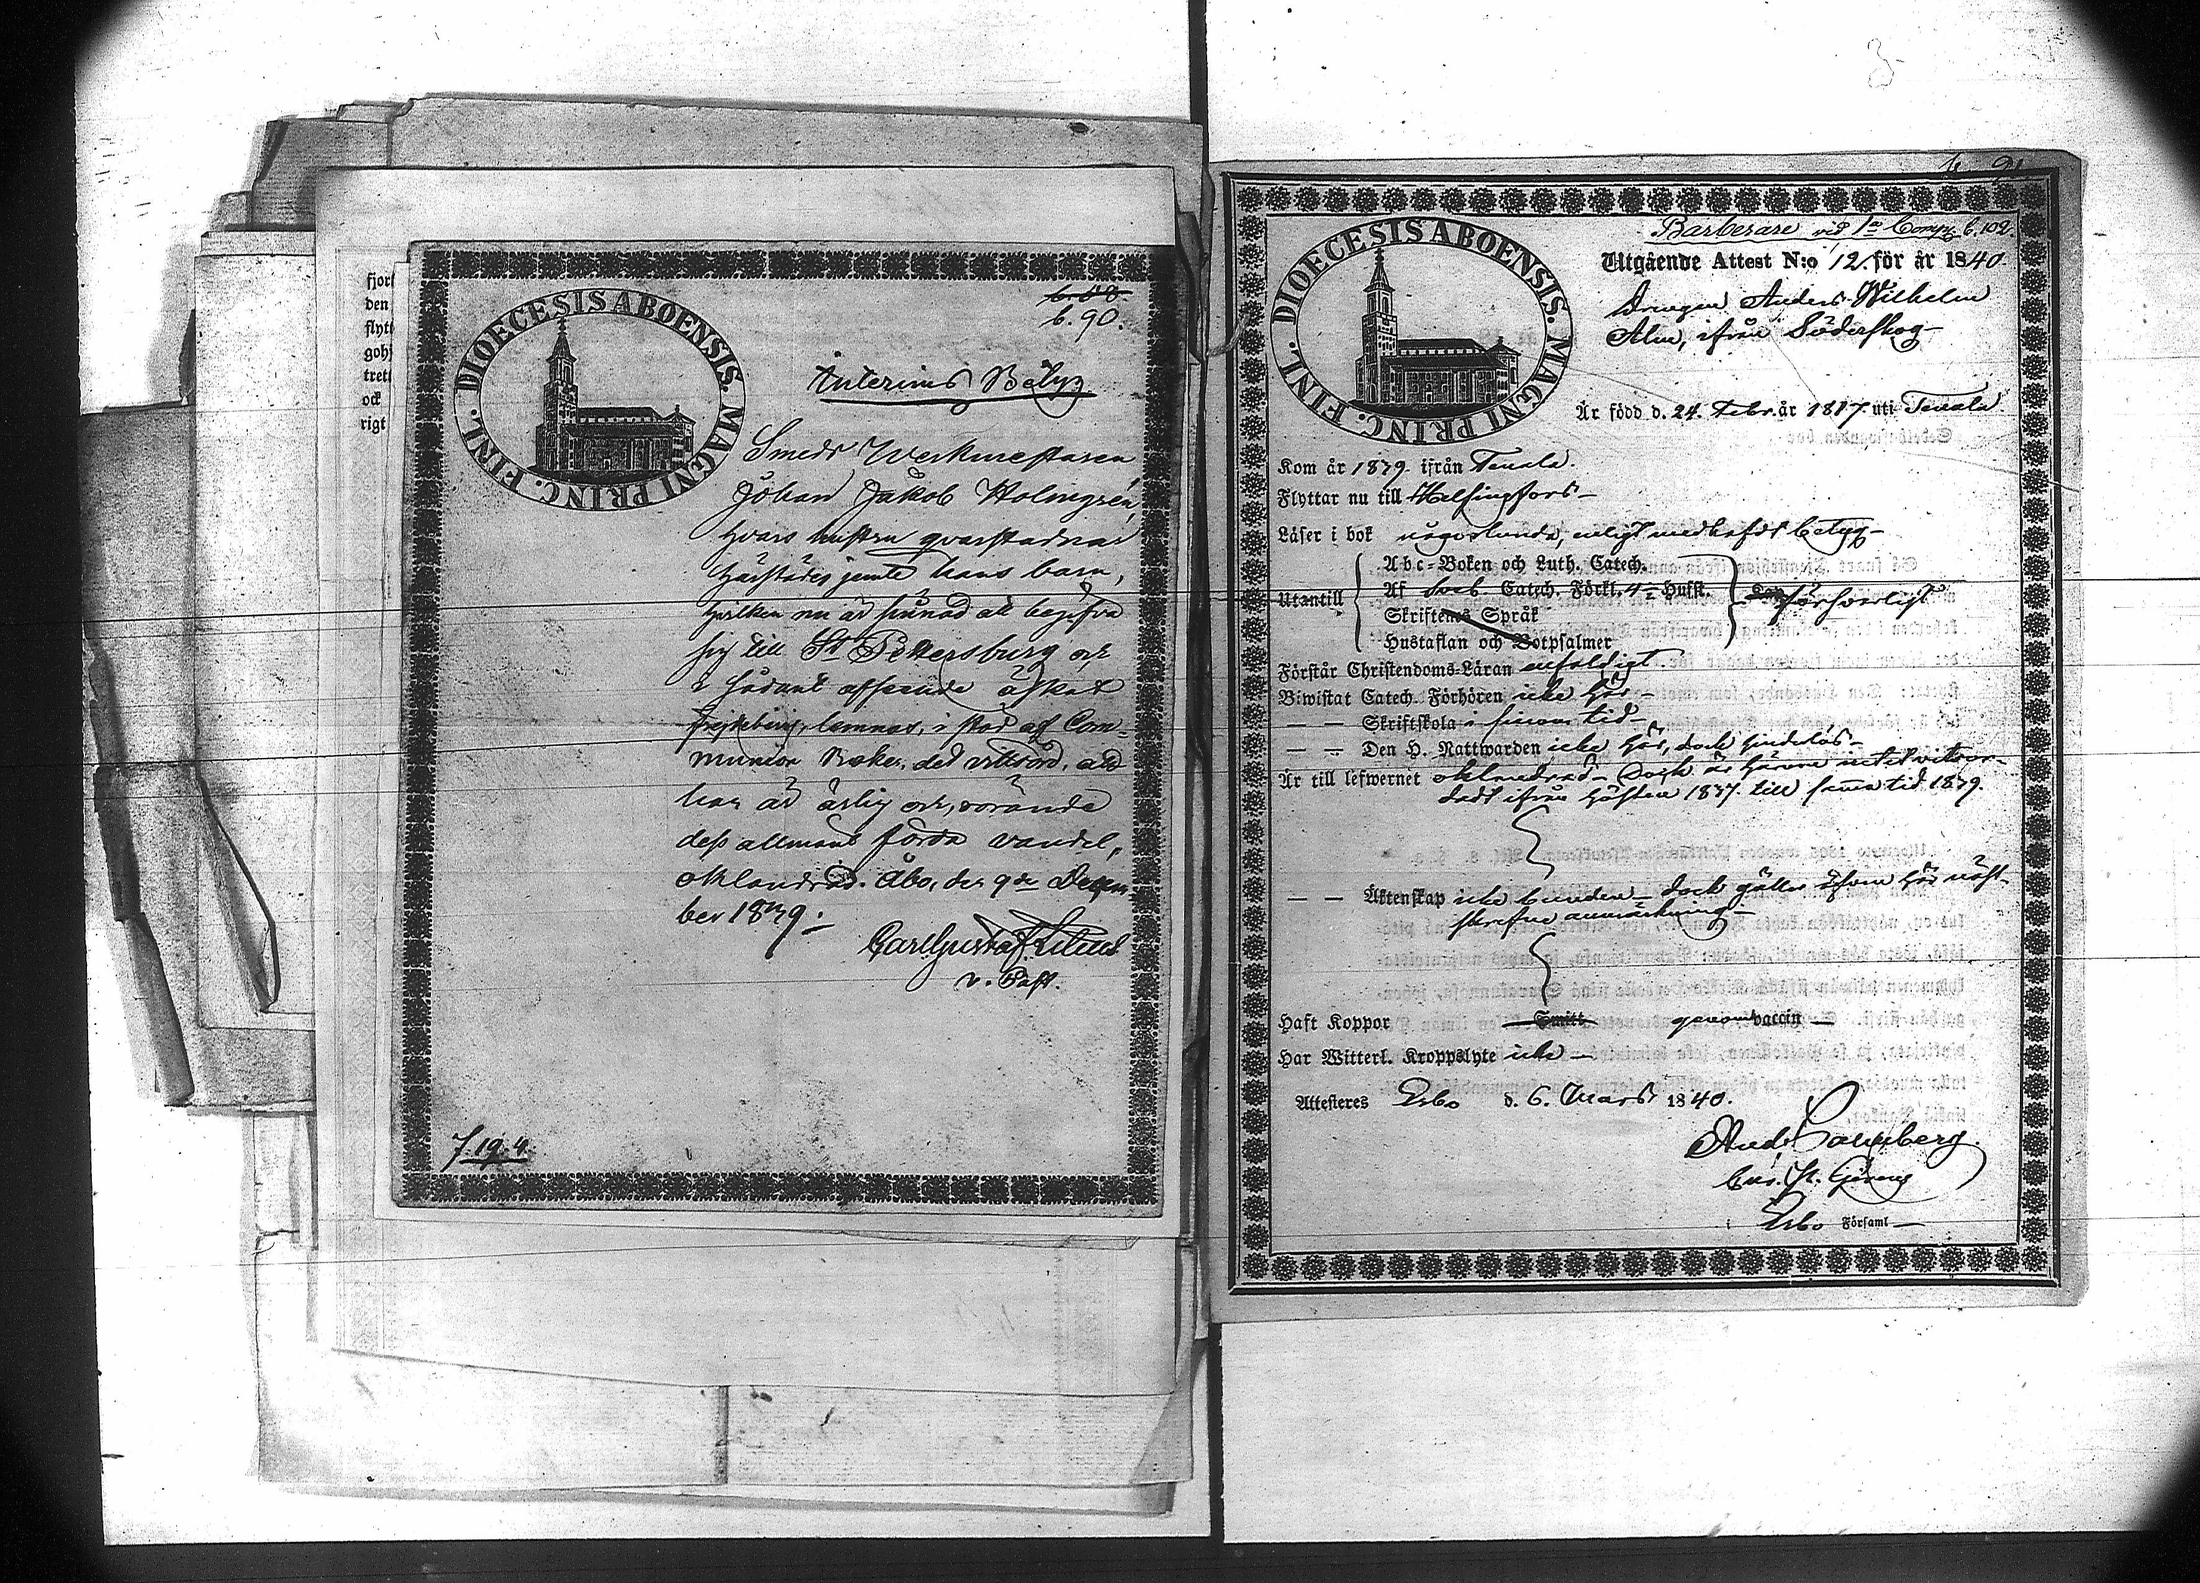 fjor
den
flytt
gohs
trett
och
rigt
DIOECESIS ABOENSIS. MAGNI PRINC. FINL.
b. 88.
b. 90.
Interims Betyg
Smeds Werkmestaren
Johan Jakob Holmgren,
hvars hustru qvarstadnar
härstädes jemte hans barn,
hvilken nu är sinnad att begifva
sig till St Petersburg och
i sådant afseende äskat
frejdebevis, lemnas, i stöd af Com-
munion Boken, det vittsord, att
han är ärlig och, rörande
dess allmänt förda vandel,
oklandrad. Åbo, den 9de Decem-
ber 1839.
Carl Gustaf
v. Past.
7.19.4.
3
b. 91
Barberare vid 1a Comp. b. 102.
DIOECESIS ABOENSIS. MAGNI PRINC. FINL.
Utgående Attest N:o 12. för år 1840.
Drengen Anders Wilhelm
Alm, ifrån Söderskog
Är född d. 24. Febr. år 1817. uti Tenala
Kom år 1839. ifrån Tenala.
Flyttar nu till Helsingfors
Läser i bok någorlunda, enligt medhafdt betyg
Utantill
Abc-Boken och Luth. Catech.
Af Sveb. Catech. Förkl. 4 Hufst.
Skriftenes Språk
Hustaflan och Botpsalmer
försvarligt
Förstår Christendoms-Läran enfaldigt.
Biwistat Catech. Förhören icke här
— — Skriftskola i sinom tid
— — Den H. Nattwarden icke här, dock hinderlös
Är till lefwernet oklandrad. Dock är härom intet vitsor-
dadt ifrån hösten 1837. till samma tid 1839.
— — Äktenskap icke bunden dock gäller äfven här näst-
skrefne anmärkning
Haft Koppor Smitt genom vaccin
Har Witterl. Kroppslyte icke
Attesteres Esbo d. 6. Mars 1840.
And
i Esbo Församl